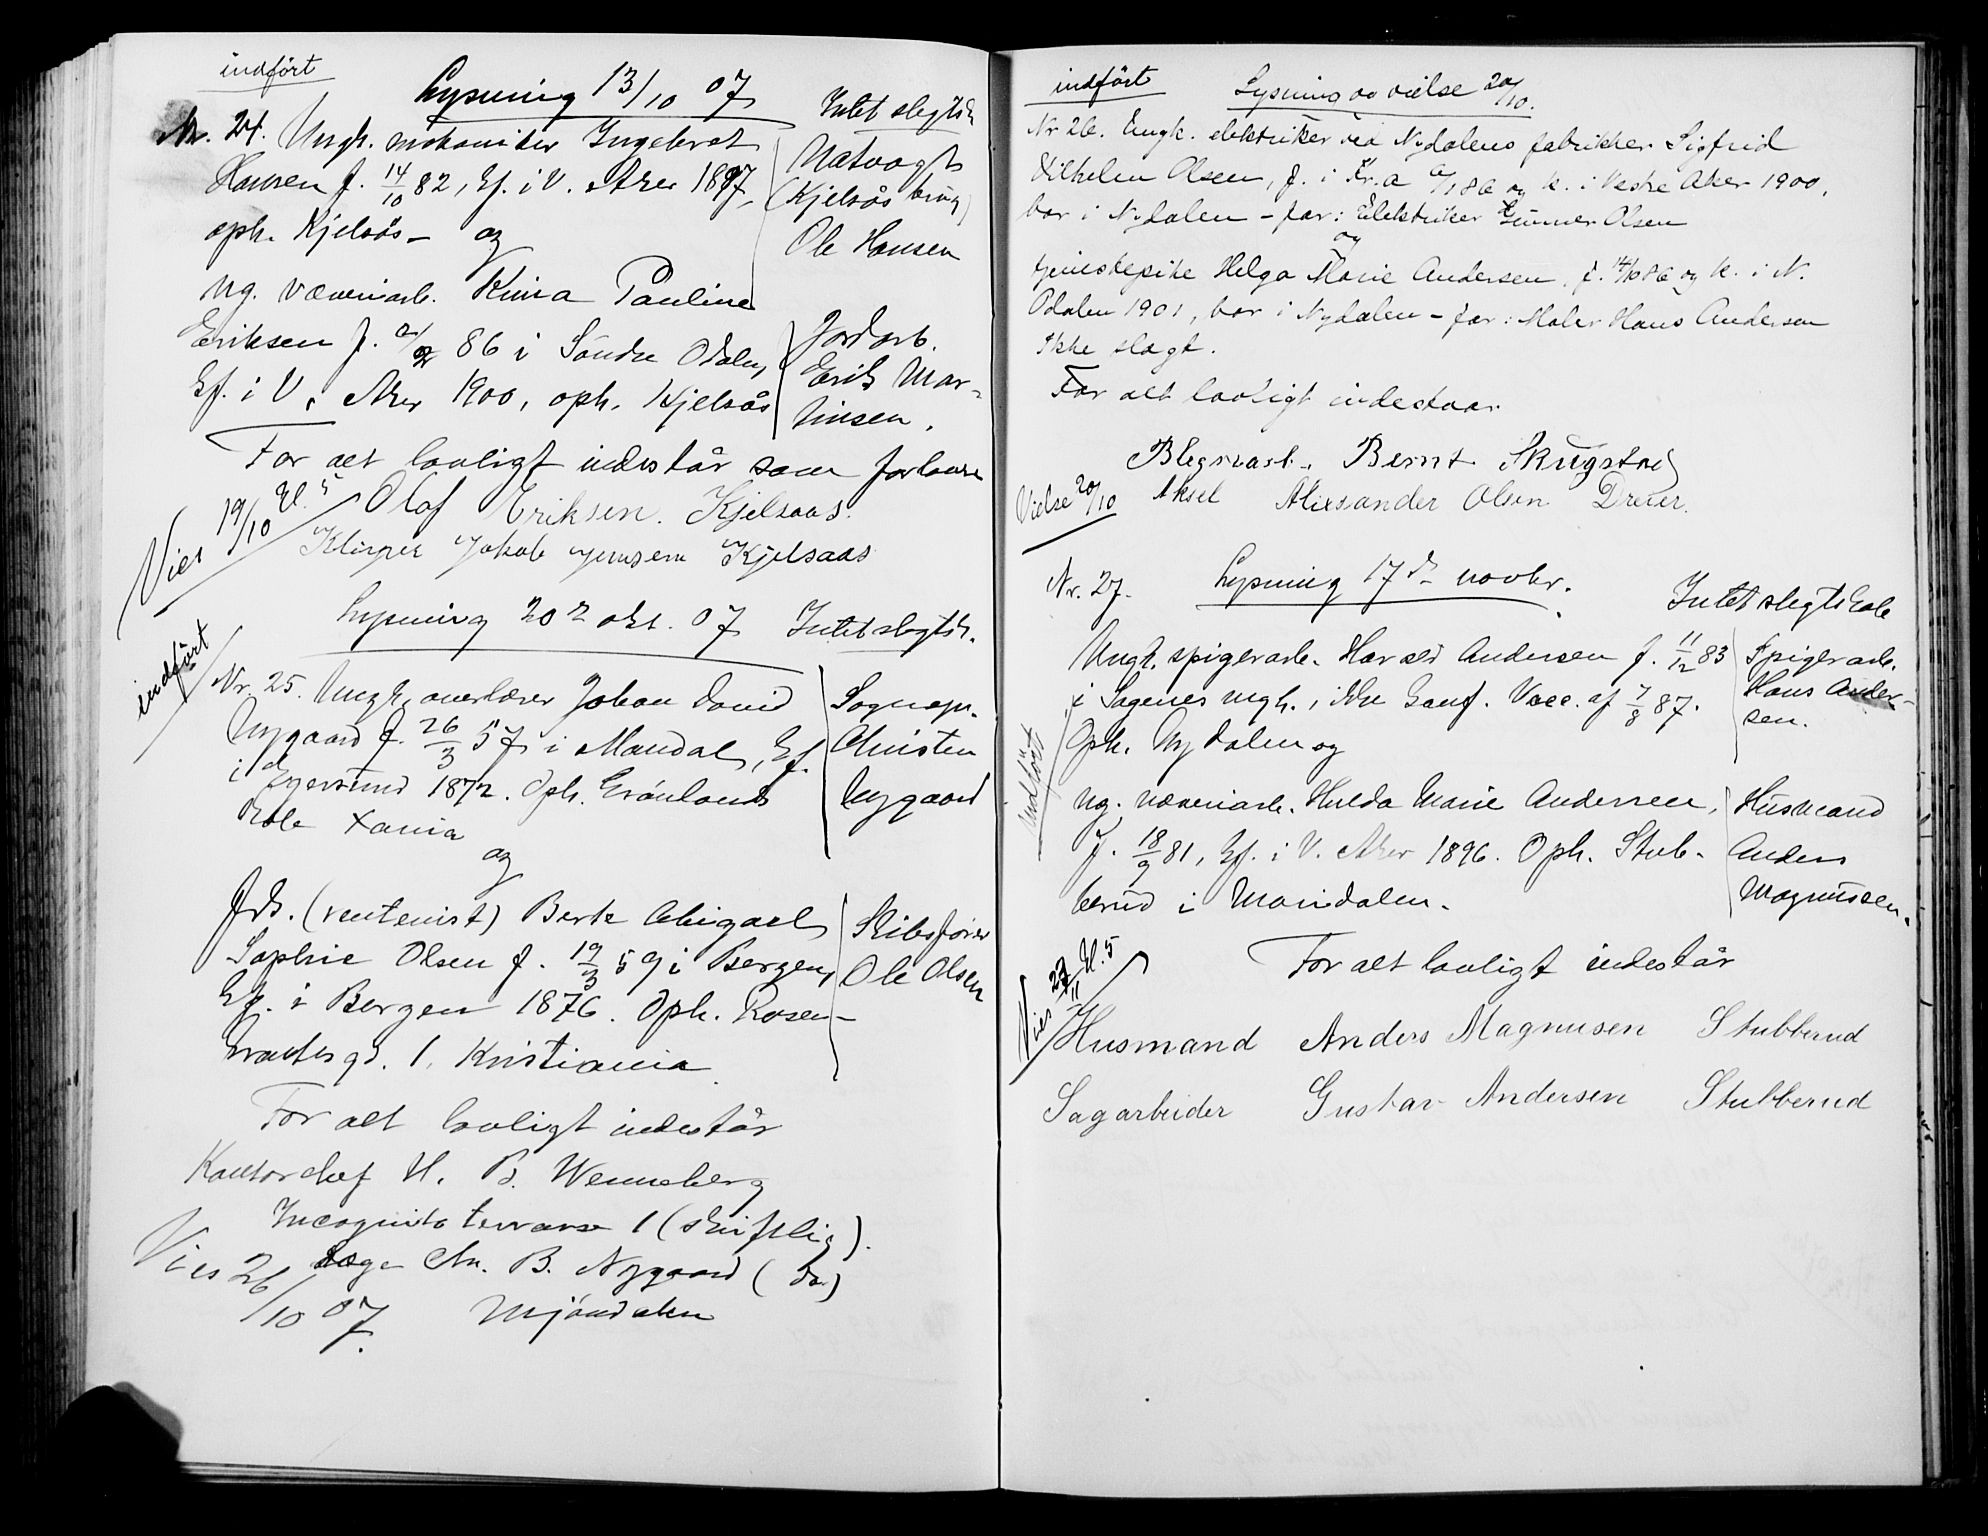 indført
Lysning 13/10 07
Intet slegtsk.
Nr. 24. Ungk. mekaniker Ingebret
Hansen f. 14/10 82, kf. i V. Aker 1897,
oph. Kjelsås – og
Natvagt
(Kjelsås brug)
Ole Hansen
ug. væveriarb. Kima Pauline
Eriksen f. 86 i Søndre Odalen,
kf. i V. Aker 1900, oph. Kjelsås
Jordarb.
Erik Mar-
tinsen.
For alt lovligt indestår som forlovere
Vies 19/10 kl. 5
Olaf Eriksen. Kjelsaas.
Jakob Jensen Kjelsaas
Lysning 20 okt. 07
Intet slegtsk.
indført
Nr. 25. Ungk. overlærer Johan David
Nygaard f. 26/3 57 i Mandal, kf.
i Egersund 1872. Oph. Grønlands
skole Xania
og
Sogнepr.
Christen
Nygaard
frk. (rentenist) Berte Abigael
Sophie Olsen f. 19/3 59 i Bergen,
kf. i Bergen 1876. Oph. Rosen-
krantzgd. 1, Kristiania
Skibsfører
Ole Olsen
For alt lovligt indestår
Kontorchef H. B. Wenneberg
Incognito terrasse 1 (skriftlig).
Læge Chr. B. Nygaard (do)
Mjøndalen
Vies 26/10 07.
indført
Lysning og vielse 20/10.
Nr 26. Ungk. elektriker ved Nydalens fabrikker Sigfrid
Vilhelm Olsen, f. i Kr.a 86 og k. i Vestre Aker 1900,
bor i Nydalen – far: Elektriker Gunner Olsen
og
tjenestepike Helga Marie Andersen, f. 14/10 86 og k. i N.
Odalen 1901, bor i Nydalen – far: Maler Hans Andersen
Ikke slægt.
For alt lovligt indestaar
Blegeriarb. Bernt Skugstad
Vielse 20/10
Aksel Alexsander Olsen Dreier.
Nr. 27.
Lysning 17de novbr.
Intet slegtskab
Ungk. spigerarb. Harald Andersen f. 11/12 83
i Sagenes mgh., ikke konf. Vacc. af 7/8 87.
Oph. Nydalen og
Spigerarb.
Hans Ander-
sen.
indført
ug. væveriarb. Hulda Marie Andersen,
f. 18/9 81, kf. i V. Aker 1896. Oph. Stub-
berud i Maridalen.
Husmand
Anders
Magnussen.
For alt lovligt indestår
Vies 27/11 kl. 5
Husmand Anders Magnusen Stubberud
Sagarbeider Gustav Andersen Stubberud